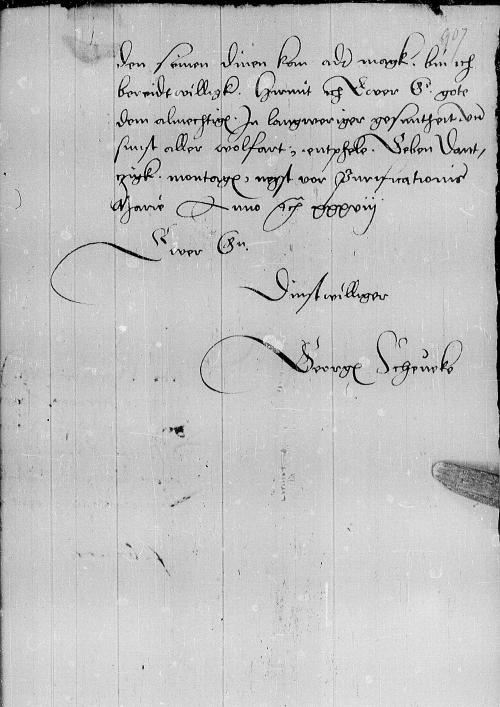 907
den seinen dinen kan adr magk. bin ich
bereidtwilligk. Hirmit ich Ewer G. gote
dem almechtigen In langweriger gesuntheit. vn
sunst aller wolfart, entphele. Geben Dant,
zigk. montages negst vor Purificationis
Marie Anno xxxviij
Ewer Gn.
Dinstwilliger
Georg Scheweke